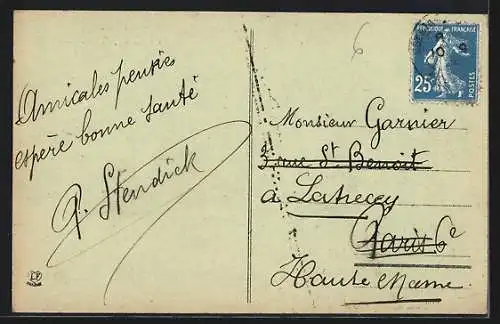 Amicales pensées
espère bonne santé
P. Stendick
6
REPUBLIQUE FRANÇAISE
25
POSTES
Monsieur Garnier
3 rue St Benoit
à Latrecey
Paris 6e
Haute Marne